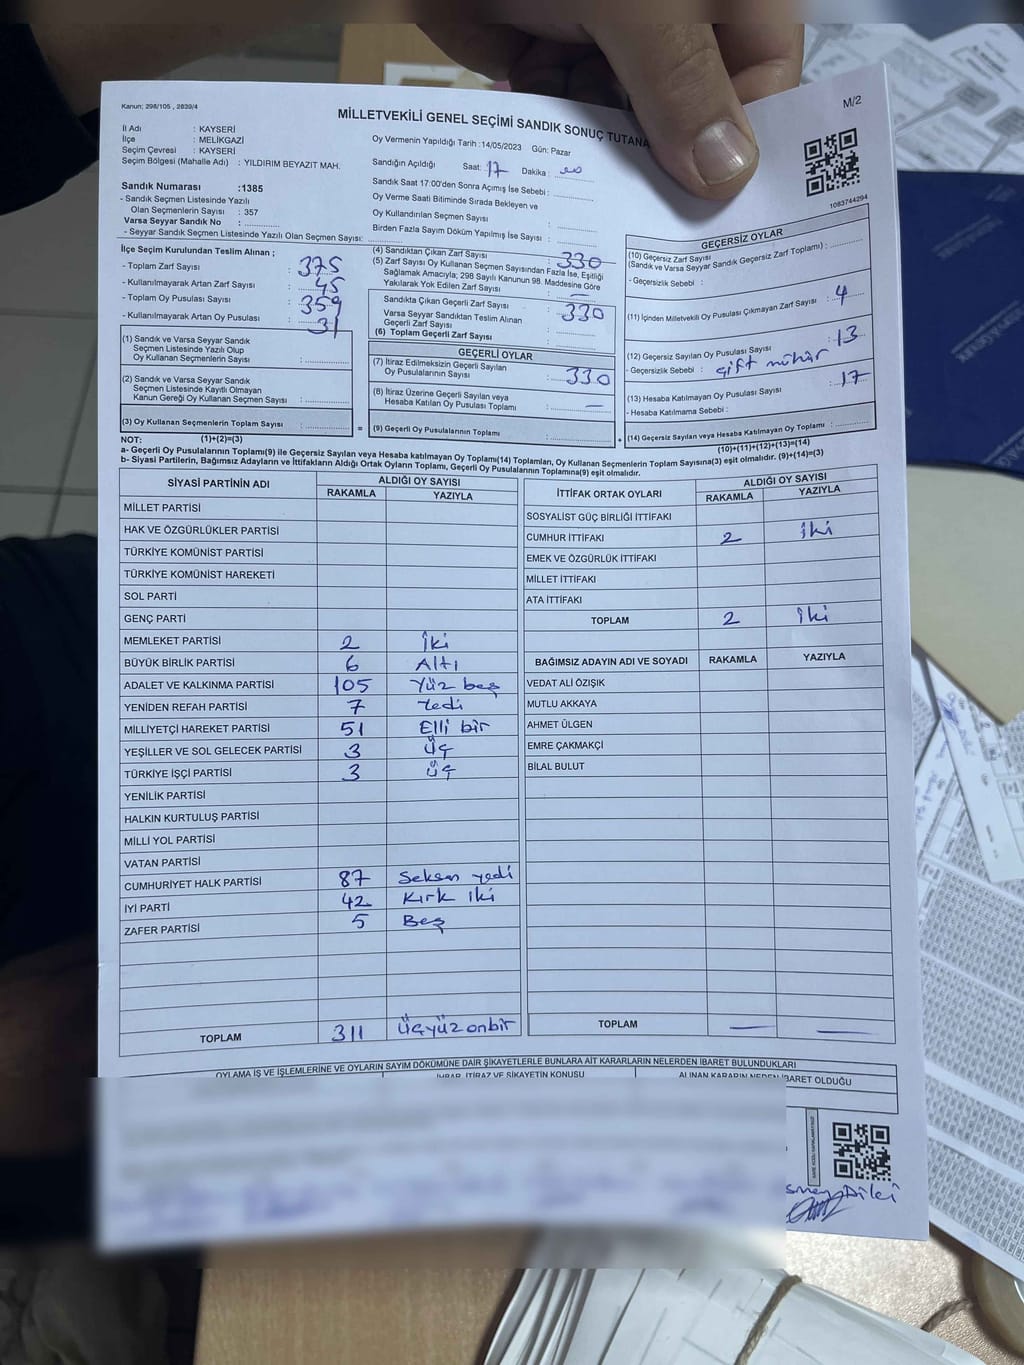 Kanun; 298/105 , 2839/4
M/2
MİLLETVEKİLİ GENEL SEÇİMİ SANDIK SONUÇ TUTANA
İl Adı : KAYSERİ
İlçe : MELİKGAZİ
Seçim Çevresi : KAYSERİ
Seçim Bölgesi (Mahalle Adı) : YILDIRIM BEYAZIT MAH.
Sandık Numarası :1385
- Sandık Seçmen Listesinde Yazılı
Olan Seçmenlerin Sayısı : 357
Varsa Seyyar Sandık No :
- Seyyar Sandık Seçmen Listesinde Yazılı Olan Seçmen Sayısı:
Oy Vermenin Yapıldığı Tarih :14/05/2023 Gün: Pazar
Sandığın Açıldığı Saat: 17 Dakika : 00
Sandık Saat 17:00'den Sonra Açımış İse Sebebi :
Oy Verme Saati Bitiminde Sırada Bekleyen ve
Oy Kullandırılan Seçmen Sayısı :
Birden Fazla Sayım Döküm Yapılmış İse Sayısı :
1083744294
İlçe Seçim Kurulundan Teslim Alınan ;
- Toplam Zarf Sayısı : 375
- Kullanılmayarak Artan Zarf Sayısı : 45
- Toplam Oy Pusulası Sayısı : 359
- Kullanılmayarak Artan Oy Pusulası : 31
(1) Sandık ve Varsa Seyyar Sandık
Seçmen Listesinde Yazılı Olup
Oy Kullanan Seçmenlerin Sayısı :
(2) Sandık ve Varsa Seyyar Sandık
Seçmen Listesinde Kayıtlı Olmayan
Kanun Gereği Oy Kullanan Seçmen Sayısı :
(3) Oy Kullanan Seçmenlerin Toplam Sayısı : =
(4) Sandıktan Çıkan Zarf Sayısı : 330
(5) Zarf Sayısı Oy Kullanan Seçmen Sayısından Fazla İse, Eşitliği
Sağlamak Amacıyla; 298 Sayılı Kanunun 98. Maddesine Göre
Yakılarak Yok Edilen Zarf Sayısı : —
Sandıkta Çıkan Geçerli Zarf Sayısı : 330
Varsa Seyyar Sandıktan Teslim Alınan
Geçerli Zarf Sayısı :
(6) Toplam Geçerli Zarf Sayısı :
GEÇERLİ OYLAR
(7) İtiraz Edilmeksizin Geçerli Sayılan
Oy Pusulalarının Sayısı : 330
(8) İtiraz Üzerine Geçerli Sayılan veya
Hesaba Katılan Oy Pusulası Toplamı : —
(9) Geçerli Oy Pusulalarının Toplamı : +
GEÇERSİZ OYLAR
(10) Geçersiz Zarf Sayısı
(Sandık ve Varsa Seyyar Sandık Geçersiz Zarf Toplamı) :
- Geçersizlik Sebebi :
(11) İçinden Milletvekili Oy Pusulası Çıkmayan Zarf Sayısı : 4
(12) Geçersiz Sayılan Oy Pusulası Sayısı : 13
- Geçersizlik Sebebi : çift mühür
(13) Hesaba Katılmayan Oy Pusulası Sayısı : 17
- Hesaba Katılmama Sebebi :
(14) Geçersiz Sayılan veya Hesaba Katılmayan Oy Pusulası Toplamı :
NOT: (1)+(2)=(3)
(10)+(11)+(12)+(13)=(14)
a- Geçerli Oy Pusulalarının Toplamı(9) ile Geçersiz Sayılan veya Hesaba katılmayan Oy Toplamı(14) Toplamları, Oy Kullanan Seçmenlerin Toplam Sayısına(3) eşit olmalıdır. (9)+(14)=(3)
b- Siyasi Partilerin, Bağımsız Adayların ve İttifakların Aldığı Ortak Oyların Toplamı, Geçerli Oy Pusulalarının Toplamına(9) eşit olmalıdır.
SİYASİ PARTİNİN ADI ALDIĞI OY SAYISI
RAKAMLA YAZIYLA
MİLLET PARTİSİ
HAK VE ÖZGÜRLÜKLER PARTİSİ
TÜRKİYE KOMÜNİST PARTİSİ
TÜRKİYE KOMÜNİST HAREKETİ
SOL PARTİ
GENÇ PARTİ
MEMLEKET PARTİSİ 2 İki
BÜYÜK BİRLİK PARTİSİ 6 Altı
ADALET VE KALKINMA PARTİSİ 105 Yüz beş
YENİDEN REFAH PARTİSİ 7 Yedi
MİLLİYETÇİ HAREKET PARTİSİ 51 Elli bir
YEŞİLLER VE SOL GELECEK PARTİSİ 3 Üç
TÜRKİYE İŞÇİ PARTİSİ 3 üç
YENİLİK PARTİSİ
HALKIN KURTULUŞ PARTİSİ
MİLLİ YOL PARTİSİ
VATAN PARTİSİ
CUMHURİYET HALK PARTİSİ 87 Seksen yedi
İYİ PARTİ 42 Kırk iki
ZAFER PARTİSİ 5 Beş
TOPLAM 311 Üçyüz onbir
İTTİFAK ORTAK OYLARI ALDIĞI OY SAYISI
RAKAMLA YAZIYLA
SOSYALİST GÜÇ BİRLİĞİ İTTİFAKI
CUMHUR İTTİFAKI 2 İki
EMEK VE ÖZGÜRLÜK İTTİFAKI
MİLLET İTTİFAKI
ATA İTTİFAKI
TOPLAM 2 İki
BAĞIMSIZ ADAYIN ADI VE SOYADI RAKAMLA YAZIYLA
VEDAT ALİ ÖZIŞIK
MUTLU AKKAYA
AHMET ÜLGEN
EMRE ÇAKMAKÇİ
BİLAL BULUT
TOPLAM — —
OYLAMA İŞ VE İŞLEMLERİNE VE OYLARIN SAYIM DÖKÜMÜNE DAİR ŞİKAYETLERLE BUNLARA AİT KARARLARIN NELERDEN İBARET BULUNDUKLARI
İHBAR, İTİRAZ VE ŞİKAYETİN KONUSU ALINAN KARARIN NEDEN İBARET OLDUĞU